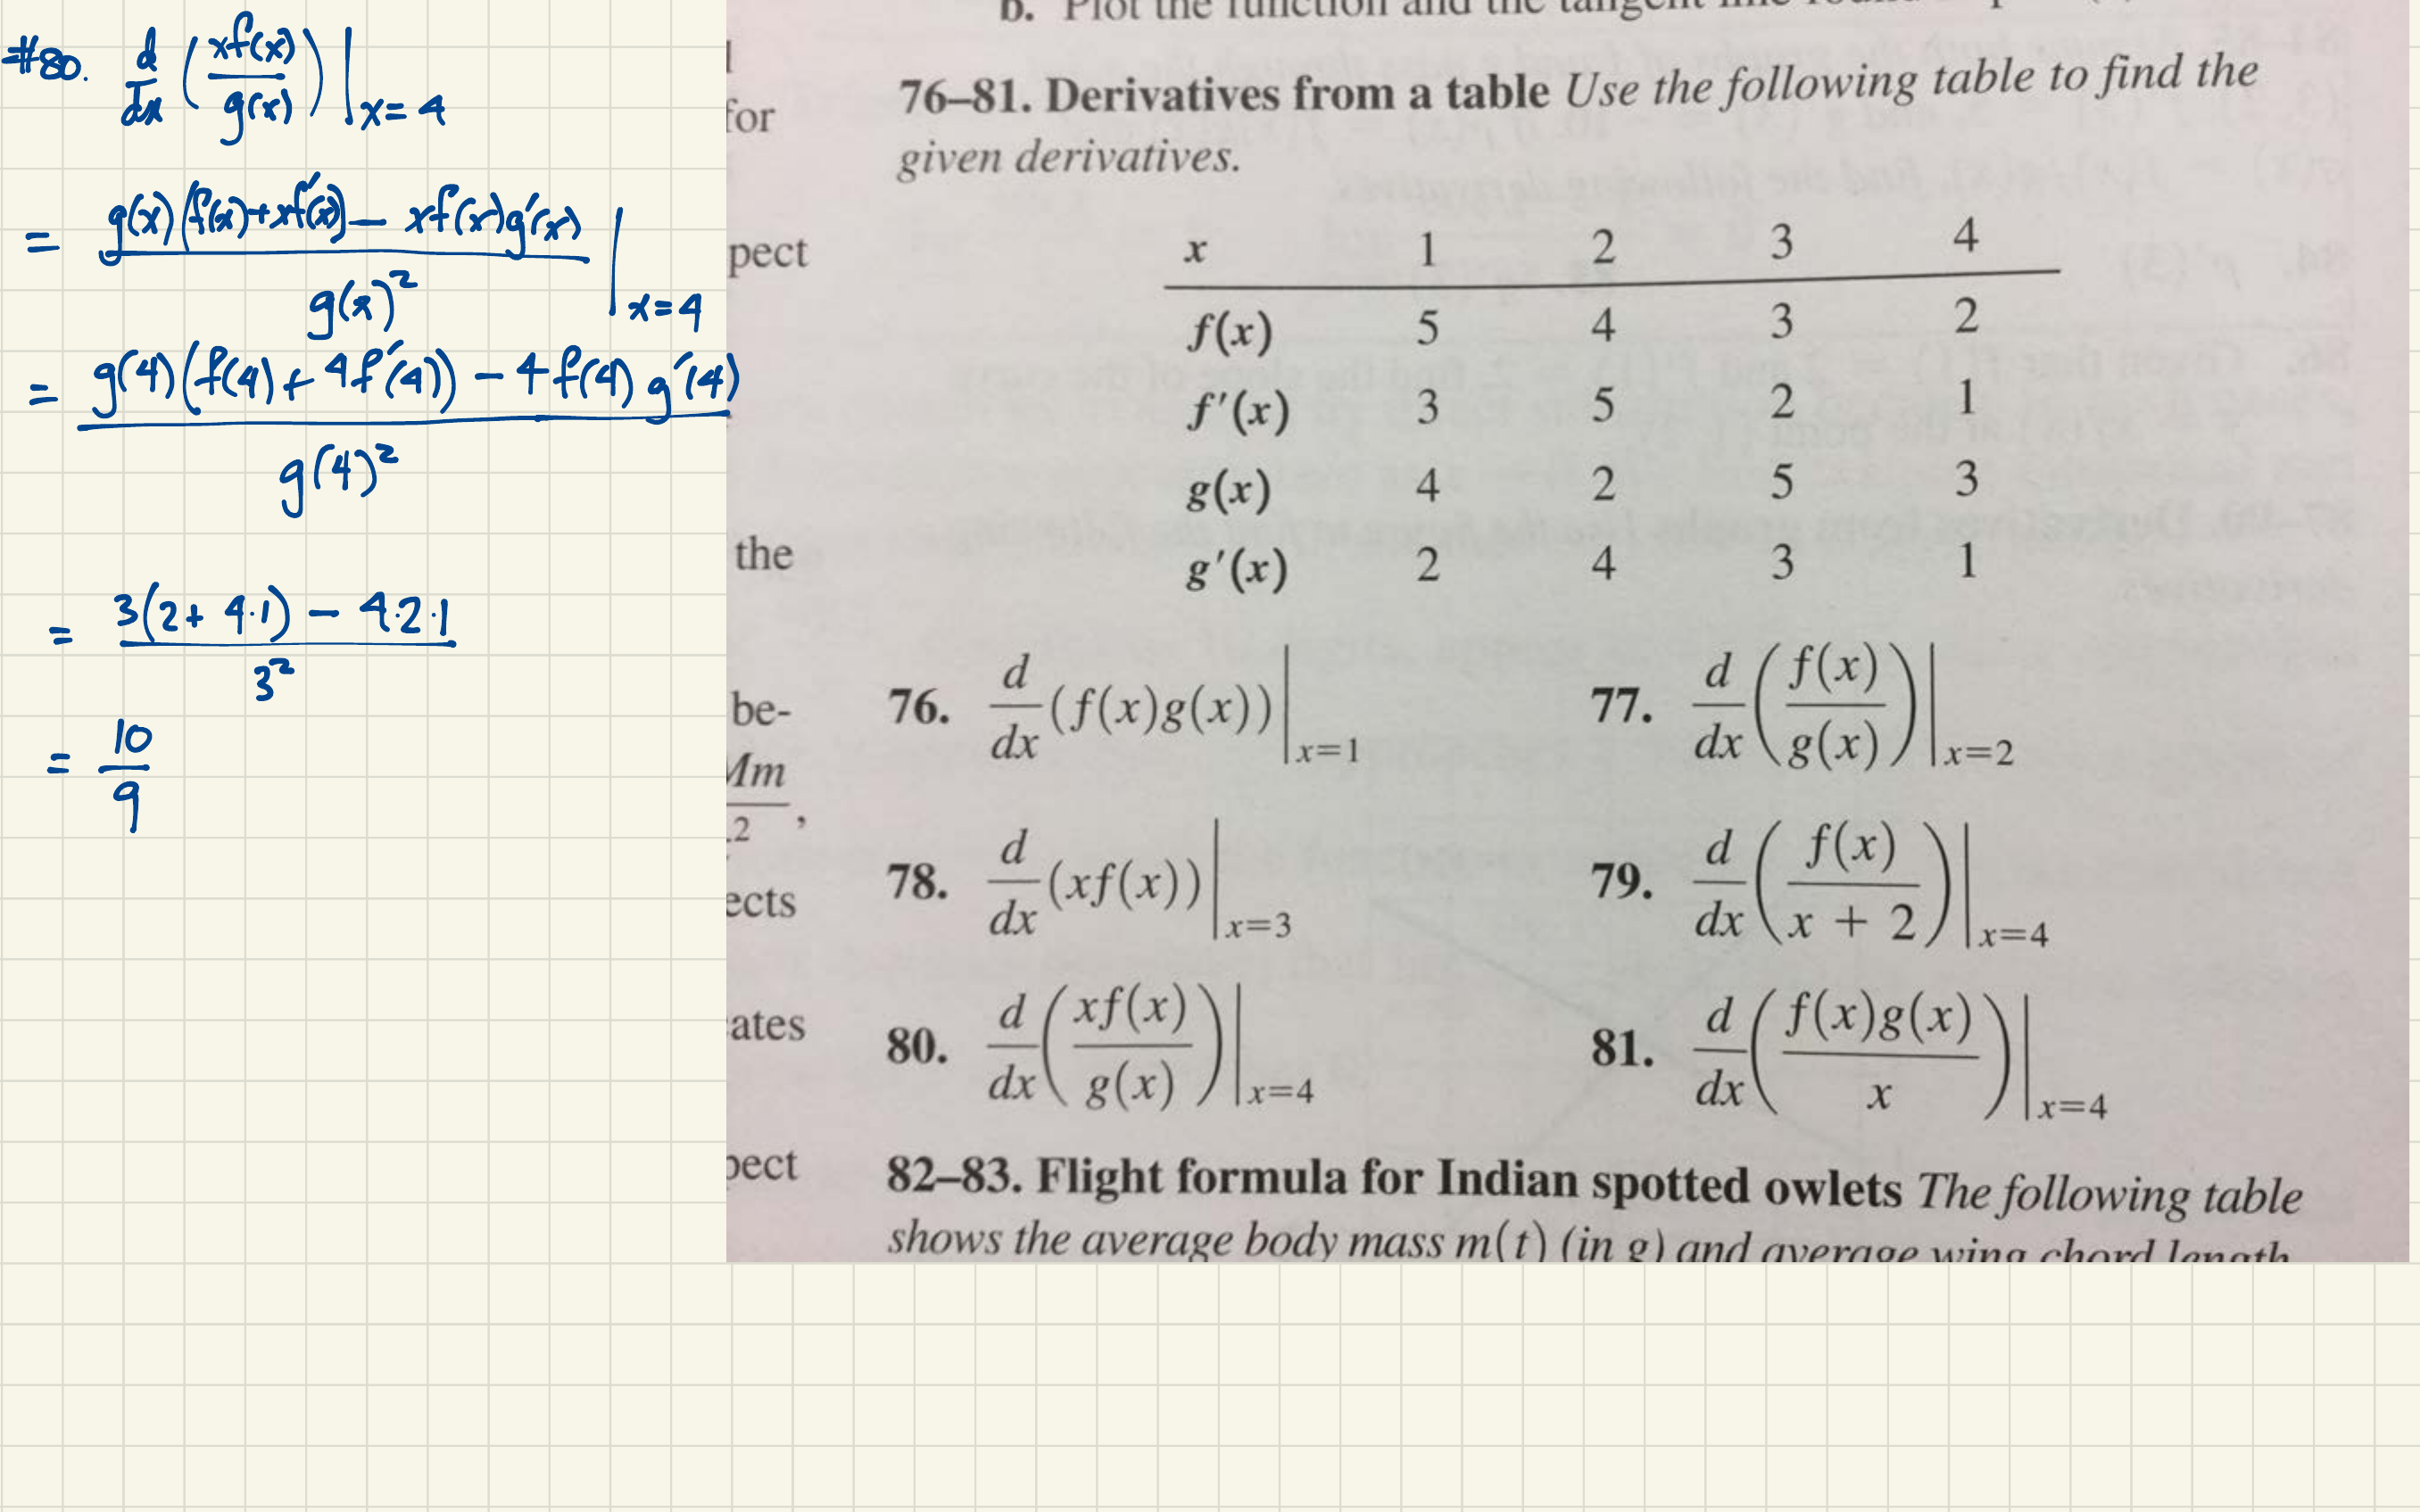 #80. d/dx (xf(x)/g(x)) |x=4
= g(x)(f(x)+xf'(x)) − xf(x)g'(x) / g(x)² |x=4
= g(4)(f(4)+4f'(4)) − 4f(4)g'(4) / g(4)²
= 3(2+4·1) − 4·2·1 / 3²
= 10/9
for
pect
the
be-
Mm
ects
ates
pect
b. Plot the function and the tangent line
76–81. Derivatives from a table Use the following table to find the
given derivatives.
x 1 2 3 4
f(x) 5 4 3 2
f'(x) 3 5 2 1
g(x) 4 2 5 3
g'(x) 2 4 3 1
76. d/dx (f(x)g(x)) |x=1 77. d/dx (f(x)/g(x)) |x=2
78. d/dx (xf(x)) |x=3 79. d/dx (f(x)/x + 2) |x=4
80. d/dx (xf(x)/g(x)) |x=4 81. d/dx (f(x)g(x)/x) |x=4
82–83. Flight formula for Indian spotted owlets The following table
shows the average body mass m(t) (in g) and average wing chord length